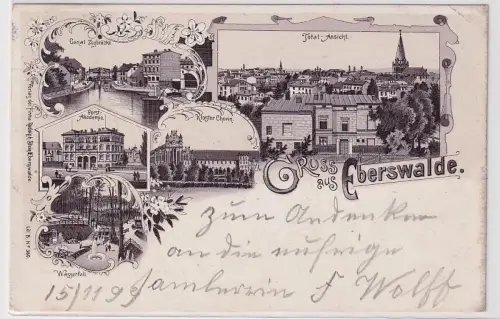 Canal Zugbrücke
Total-Ansicht.
Forst-
Akademie.
Kloster Chorin.
Gruss
aus Eberswalde.
Wasserfall.
zum Andenken
an die eifrige
15/11 99 Samlerrin F Wolff